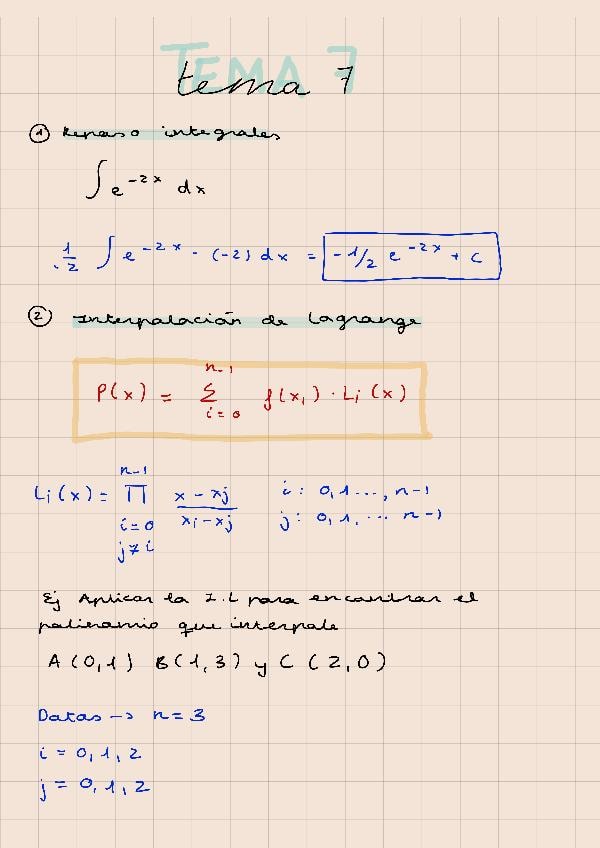 TEMA 7
tema 7
① Repaso integrales
∫ e^{-2x} dx
-1/2 ∫ e^{-2x} · (-2) dx = -1/2 e^{-2x} + C
② Interpolación de Lagrange
P(x) = Σ_{i=0}^{n-1} f(x_i) · L_i(x)
L_i(x) = Π_{i=0, j≠i}^{n-1} (x - x_j)/(x_i - x_j)   i: 0,1...,n-1
j: 0,1,... n-1
Ej Aplicar la I.L para encontrar el
polinomio que interpole
A(0,1) B(1,3) y C(2,0)
Datos → n=3
i = 0,1,2
j = 0,1,2